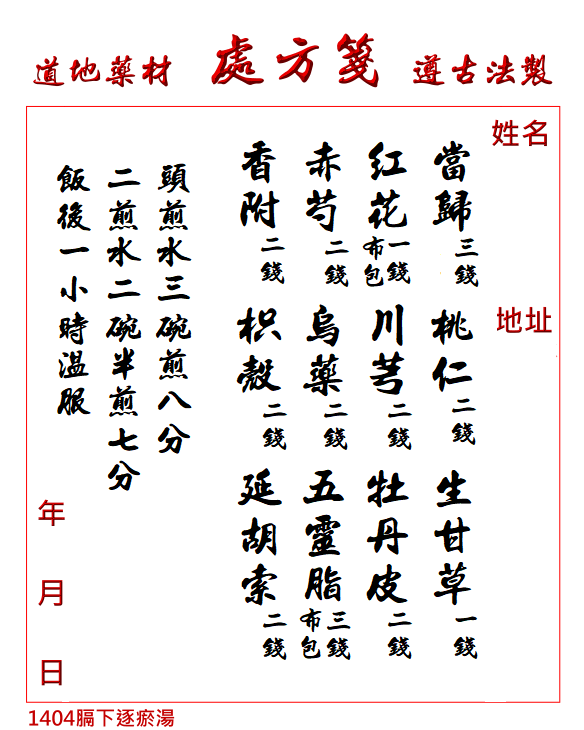 道地藥材 處方箋 遵古法製
姓名
地址
當歸三錢 桃仁二錢 生甘草一錢
紅花一錢布包 川芎二錢 牡丹皮二錢
赤芍二錢 烏藥二錢 五靈脂三錢布包
香附二錢 枳殼二錢 延胡索二錢
頭煎水三碗煎八分
二煎水二碗半煎七分
飯後一小時溫服
年 月 日
1404膈下逐瘀湯